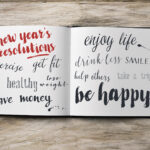 new year's
resolutions
exercise get fit
healthy lose weight
save money
enjoy life
drink less SMILE
help others take a trip
be happy